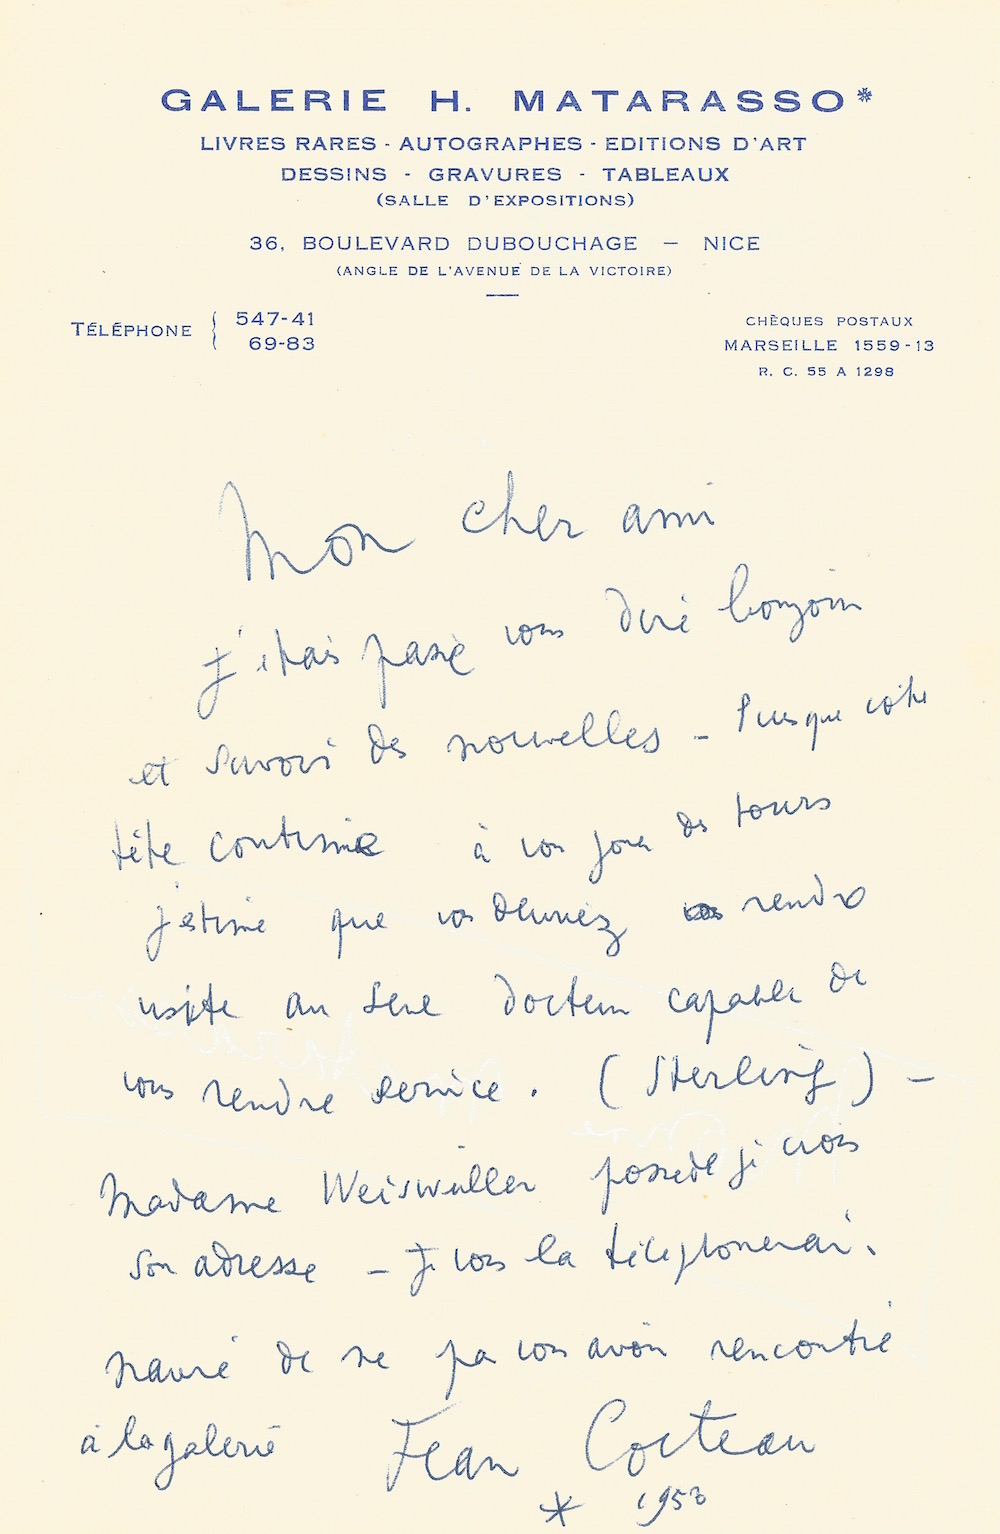 GALERIE H. MATARASSO*
LIVRES RARES - AUTOGRAPHES - EDITIONS D'ART
DESSINS - GRAVURES - TABLEAUX
(SALLE D'EXPOSITIONS)
36, BOULEVARD DUBOUCHAGE — NICE
(ANGLE DE L'AVENUE DE LA VICTOIRE)
TÉLÉPHONE { 547-41
69-83
CHÈQUES POSTAUX
MARSEILLE 1559-13
R. C. 55 A 1298
Mon cher ami
j'étais passé vous dire bonjour
et savoir des nouvelles – Puisque votre
tête continue à vous jouer des tours
j'estime que vous devriez rendre
visite au seul docteur capable de
vous rendre service. (Sterling) –
Madame Weisweiller possède je crois
son adresse – Je vous la téléphonerai.
navré de ne pas vous avoir rencontré
à la galerie Jean Cocteau
* 1953